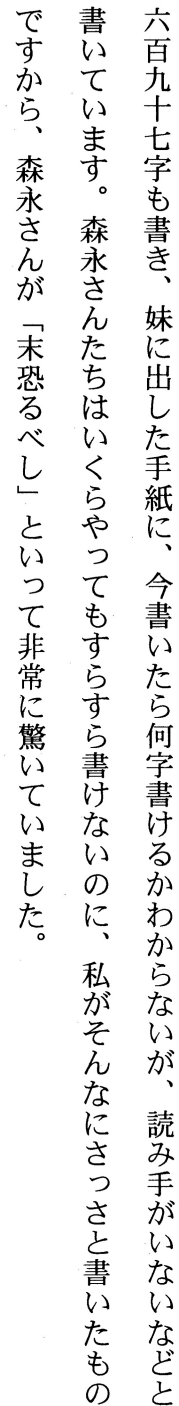 六百九十七字も書き、妹に出した手紙に、今書いたら何字書けるかわからないが、読み手がいないなどと
書いています。森永さんたちはいくらやってもすらすら書けないのに、私がそんなにさっさと書いたもの
ですから、森永さんが「末恐るべし」といって非常に驚いていました。